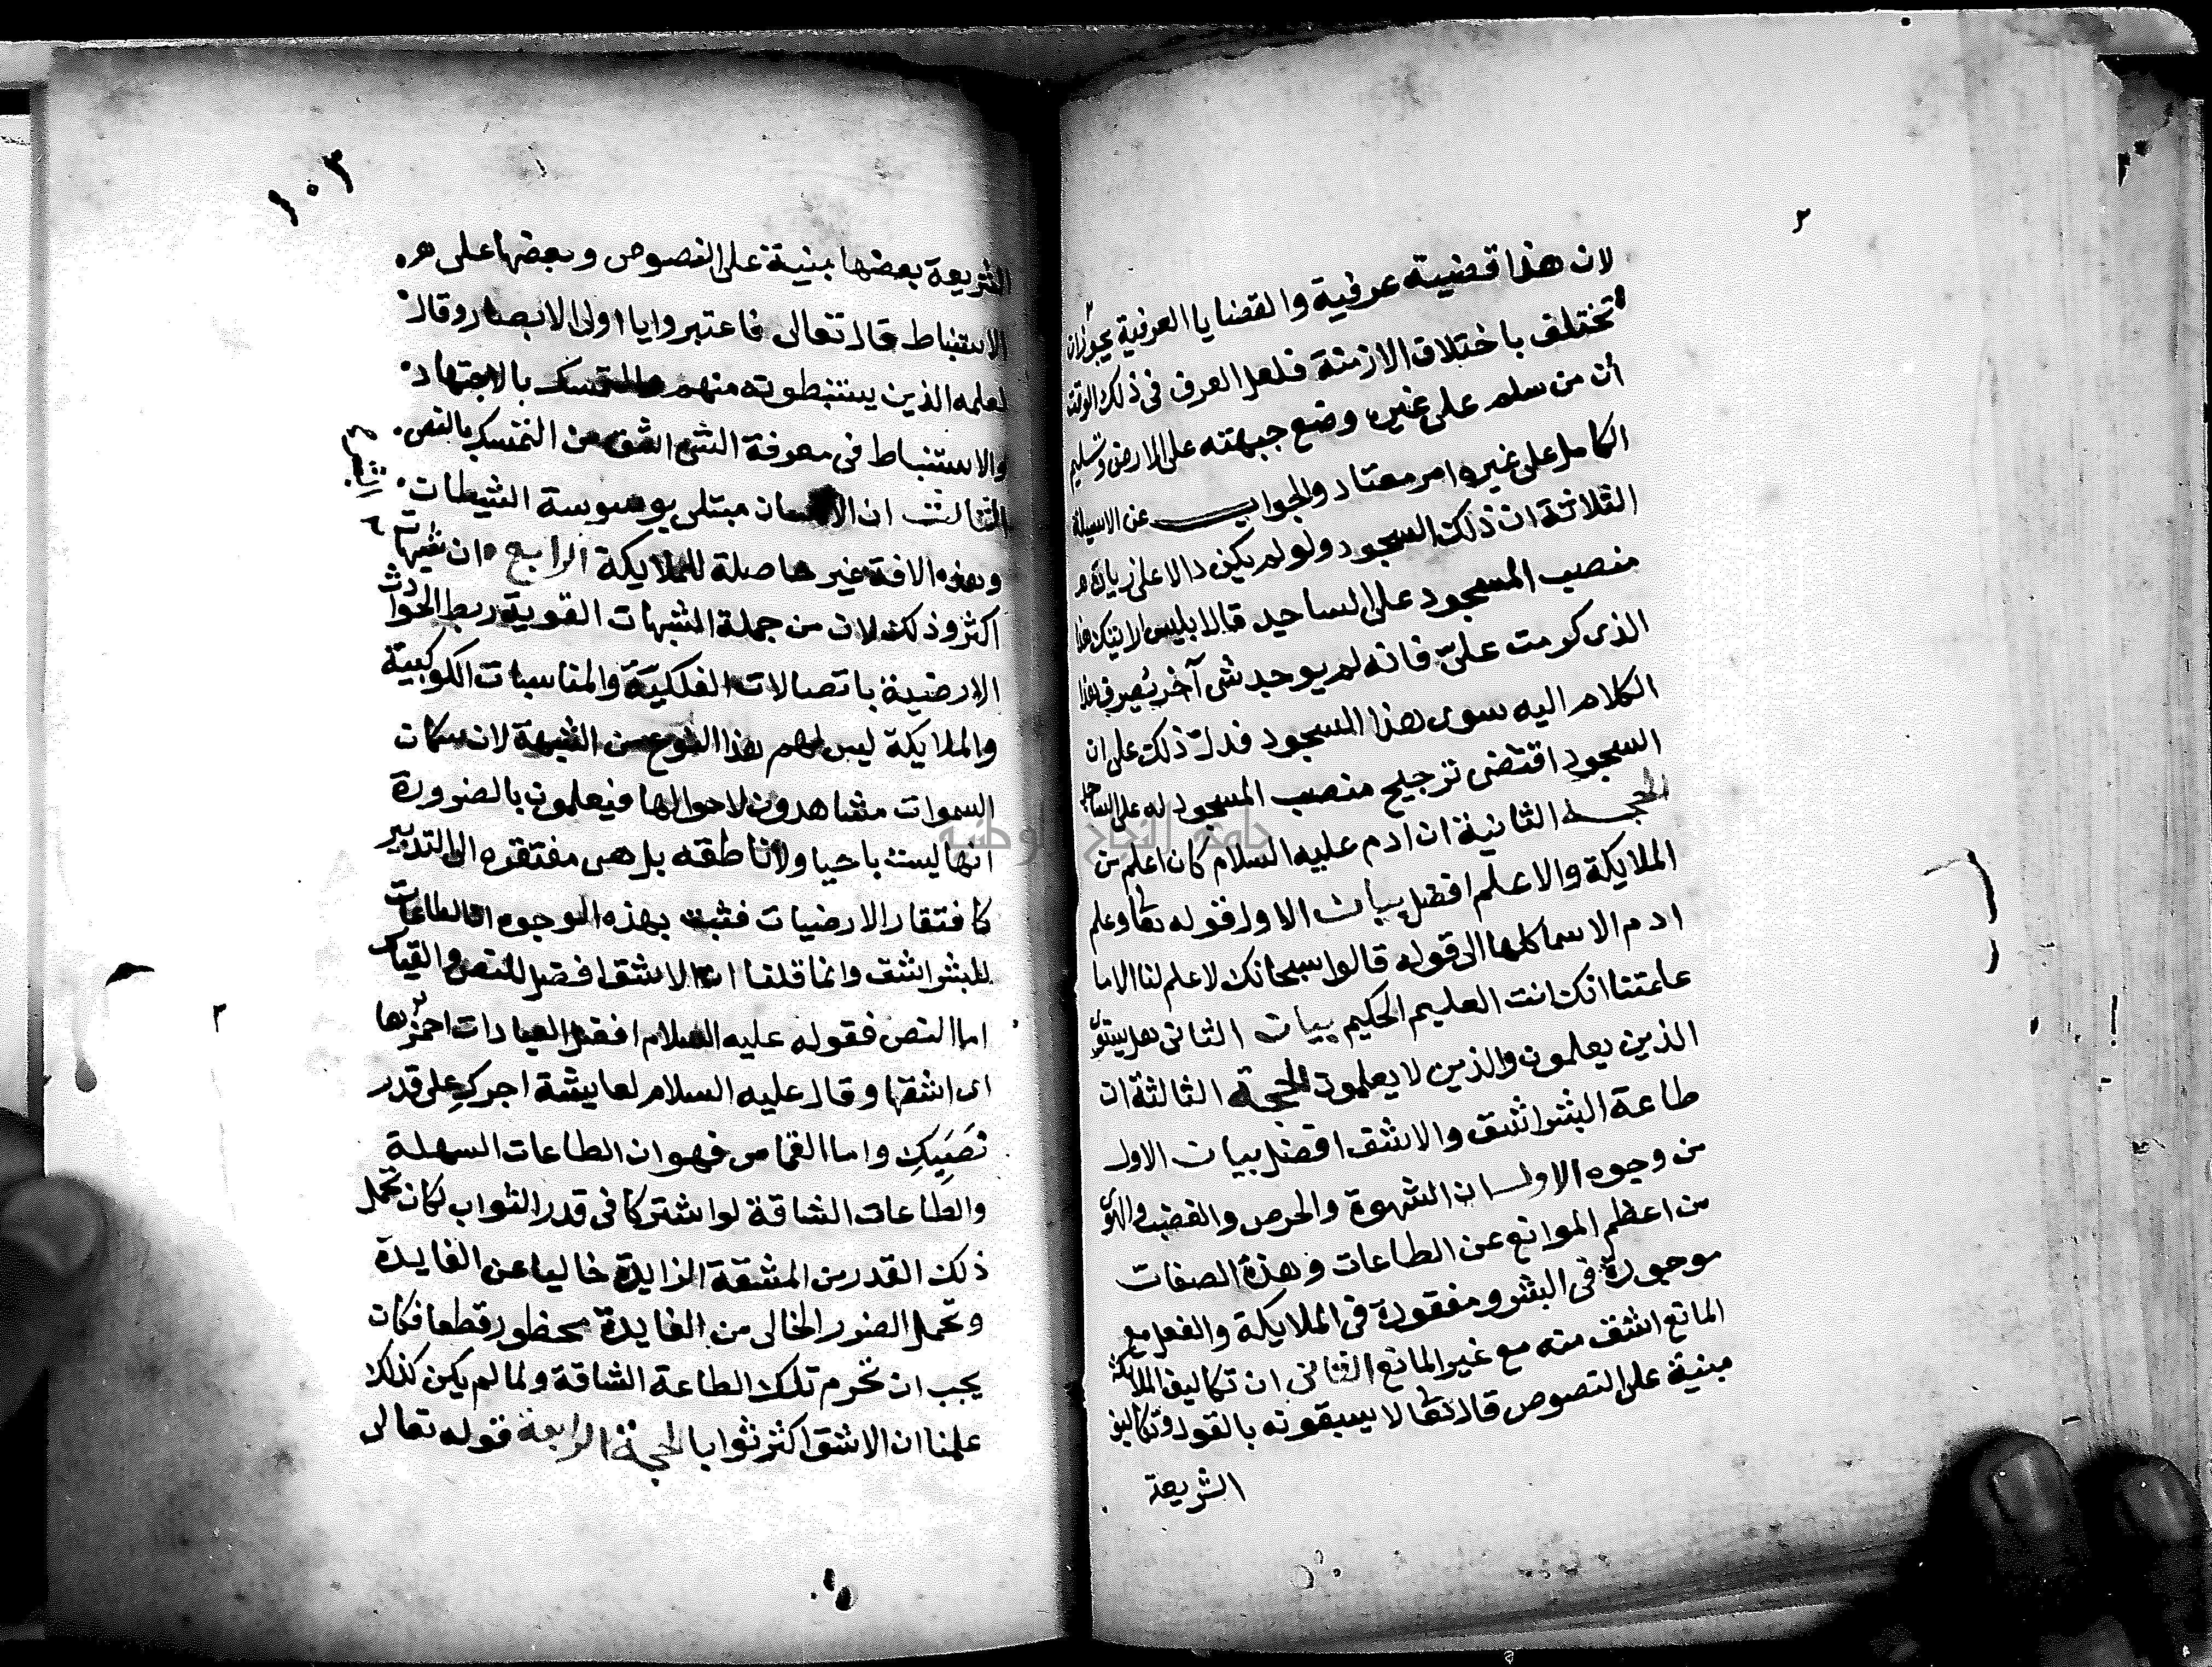 لان هذا قضية عرفية والقضايا العرفية يجوز ان
تختلف باختلاق الازمنة فلعل العرف فى ذلك الوقت
أن من سلم على غيره وضع جبهته على الارض وتسليم
الكامل على غيره امر معتاد والجواب عن الاسيلة
الثلاثة ان ذلك السجود ولو لم يكن دالا على زيادة
منصب المسجود على الساجد قال ابليس ارايتك هذا
الذى كرمت علىّ فانه لم يوجد شى آخر يصرف هذا
الكلام اليه سوى هذا السجود فدل ذلك على ان
السجود اقتضى ترجيح منصب المسجود له على الساجد
الحجة الثانية ان ادم عليه السلام كان اعلم من
الملايكة والاعلم افضل بيان الاول قوله تعا وعلم
ادم الاسما كلها الى قوله قالوا سبحانك لا علم لنا الا ما
علمتنا انك انت العليم الحكيم بيان الثانى هل يستوى
الذين يعلمون والذين لا يعلمون الحجة الثالثة ان
طاعة البشر اشق والاشق افضل بيان الاول
من وجوه الاول ان الشهوة والحرص والغضب والهوى
من اعظم الموانع عن الطاعات وهذه الصفات
موجودة فى البشر ومفقودة فى الملايكة والفعل مع
المانع اشق منه مع غير المانع الثانى ان تكاليف الملايكة
مبنية على النصوص قال تعا لا يسبقونه بالقول وتكاليف
الشريعة
١٠٣
الشريعة بعضها مبنية على النصوص وبعضها على
الاستنباط قال تعالى فاعتبروا يا اولى الابصار وقال
لعلمه الذين يستنبطونه منهم والتمسك بالاجتهاد
والاستنباط فى معرفة الشى اشق من التمسك بالنص
الثالث ان الانسان مبتلى بوسوسة الشيطان
وهذه الافة غير حاصلة للملايكة الرابع ان شبهات
اكثر وذلك لان من جملة الشبهات القوية ربط الحوادث
الارضية باتصالات الفلكية والمناسبات الكوكبية
والملايكة ليس لهم هذا النوع من الشبهة لان سكان
السموات مشاهدون لاحوالها فيعلمون بالضرورة
انها ليست باحيا ولا ناطقه بل هى مفتقره الى التدبير
كافتقار الارضيات فثبت بهذه الوجوه ان الطاعات
للبشر اشق وانما قلنا ان الاشق افضل للنص والقياس
اما النص فقوله عليه السلام افضل العبادات احمزها
اى اشقها وقال عليه السلام لعايشة اجرك على قدر
نصبك واما القياس فهو ان الطاعات السهلة
والطاعات الشاقة لو اشتركا فى قدر الثواب لكان تحمل
ذلك القدر من المشقة الزايدة خاليا عن الفايدة
وتحمل الضرر الخالى من الفايدة محظور قطعا فكان
يجب ان تحرم تلك الطاعة الشاقة ولما لم يكن كذلك
علمنا ان الاشق اكثر ثوابا الحجة الرابعة قوله تعالى
جامعة النجاح الوطنية